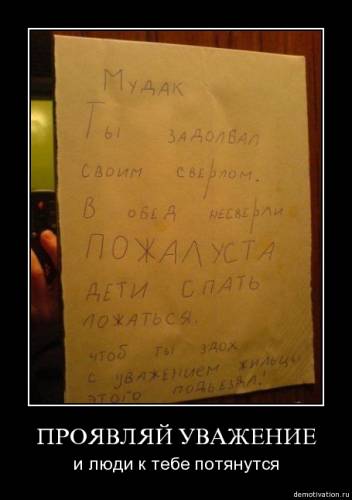 Мудак
Ты задолбал
своим сверлом.
В обед несверли
ПОЖАЛУСТА
дети спать
ложаться.
чтоб ты здох
с уважением жильцы
этого подьезда!
ПРОЯВЛЯЙ УВАЖЕНИЕ
и люди к тебе потянутся
demotivation.ru